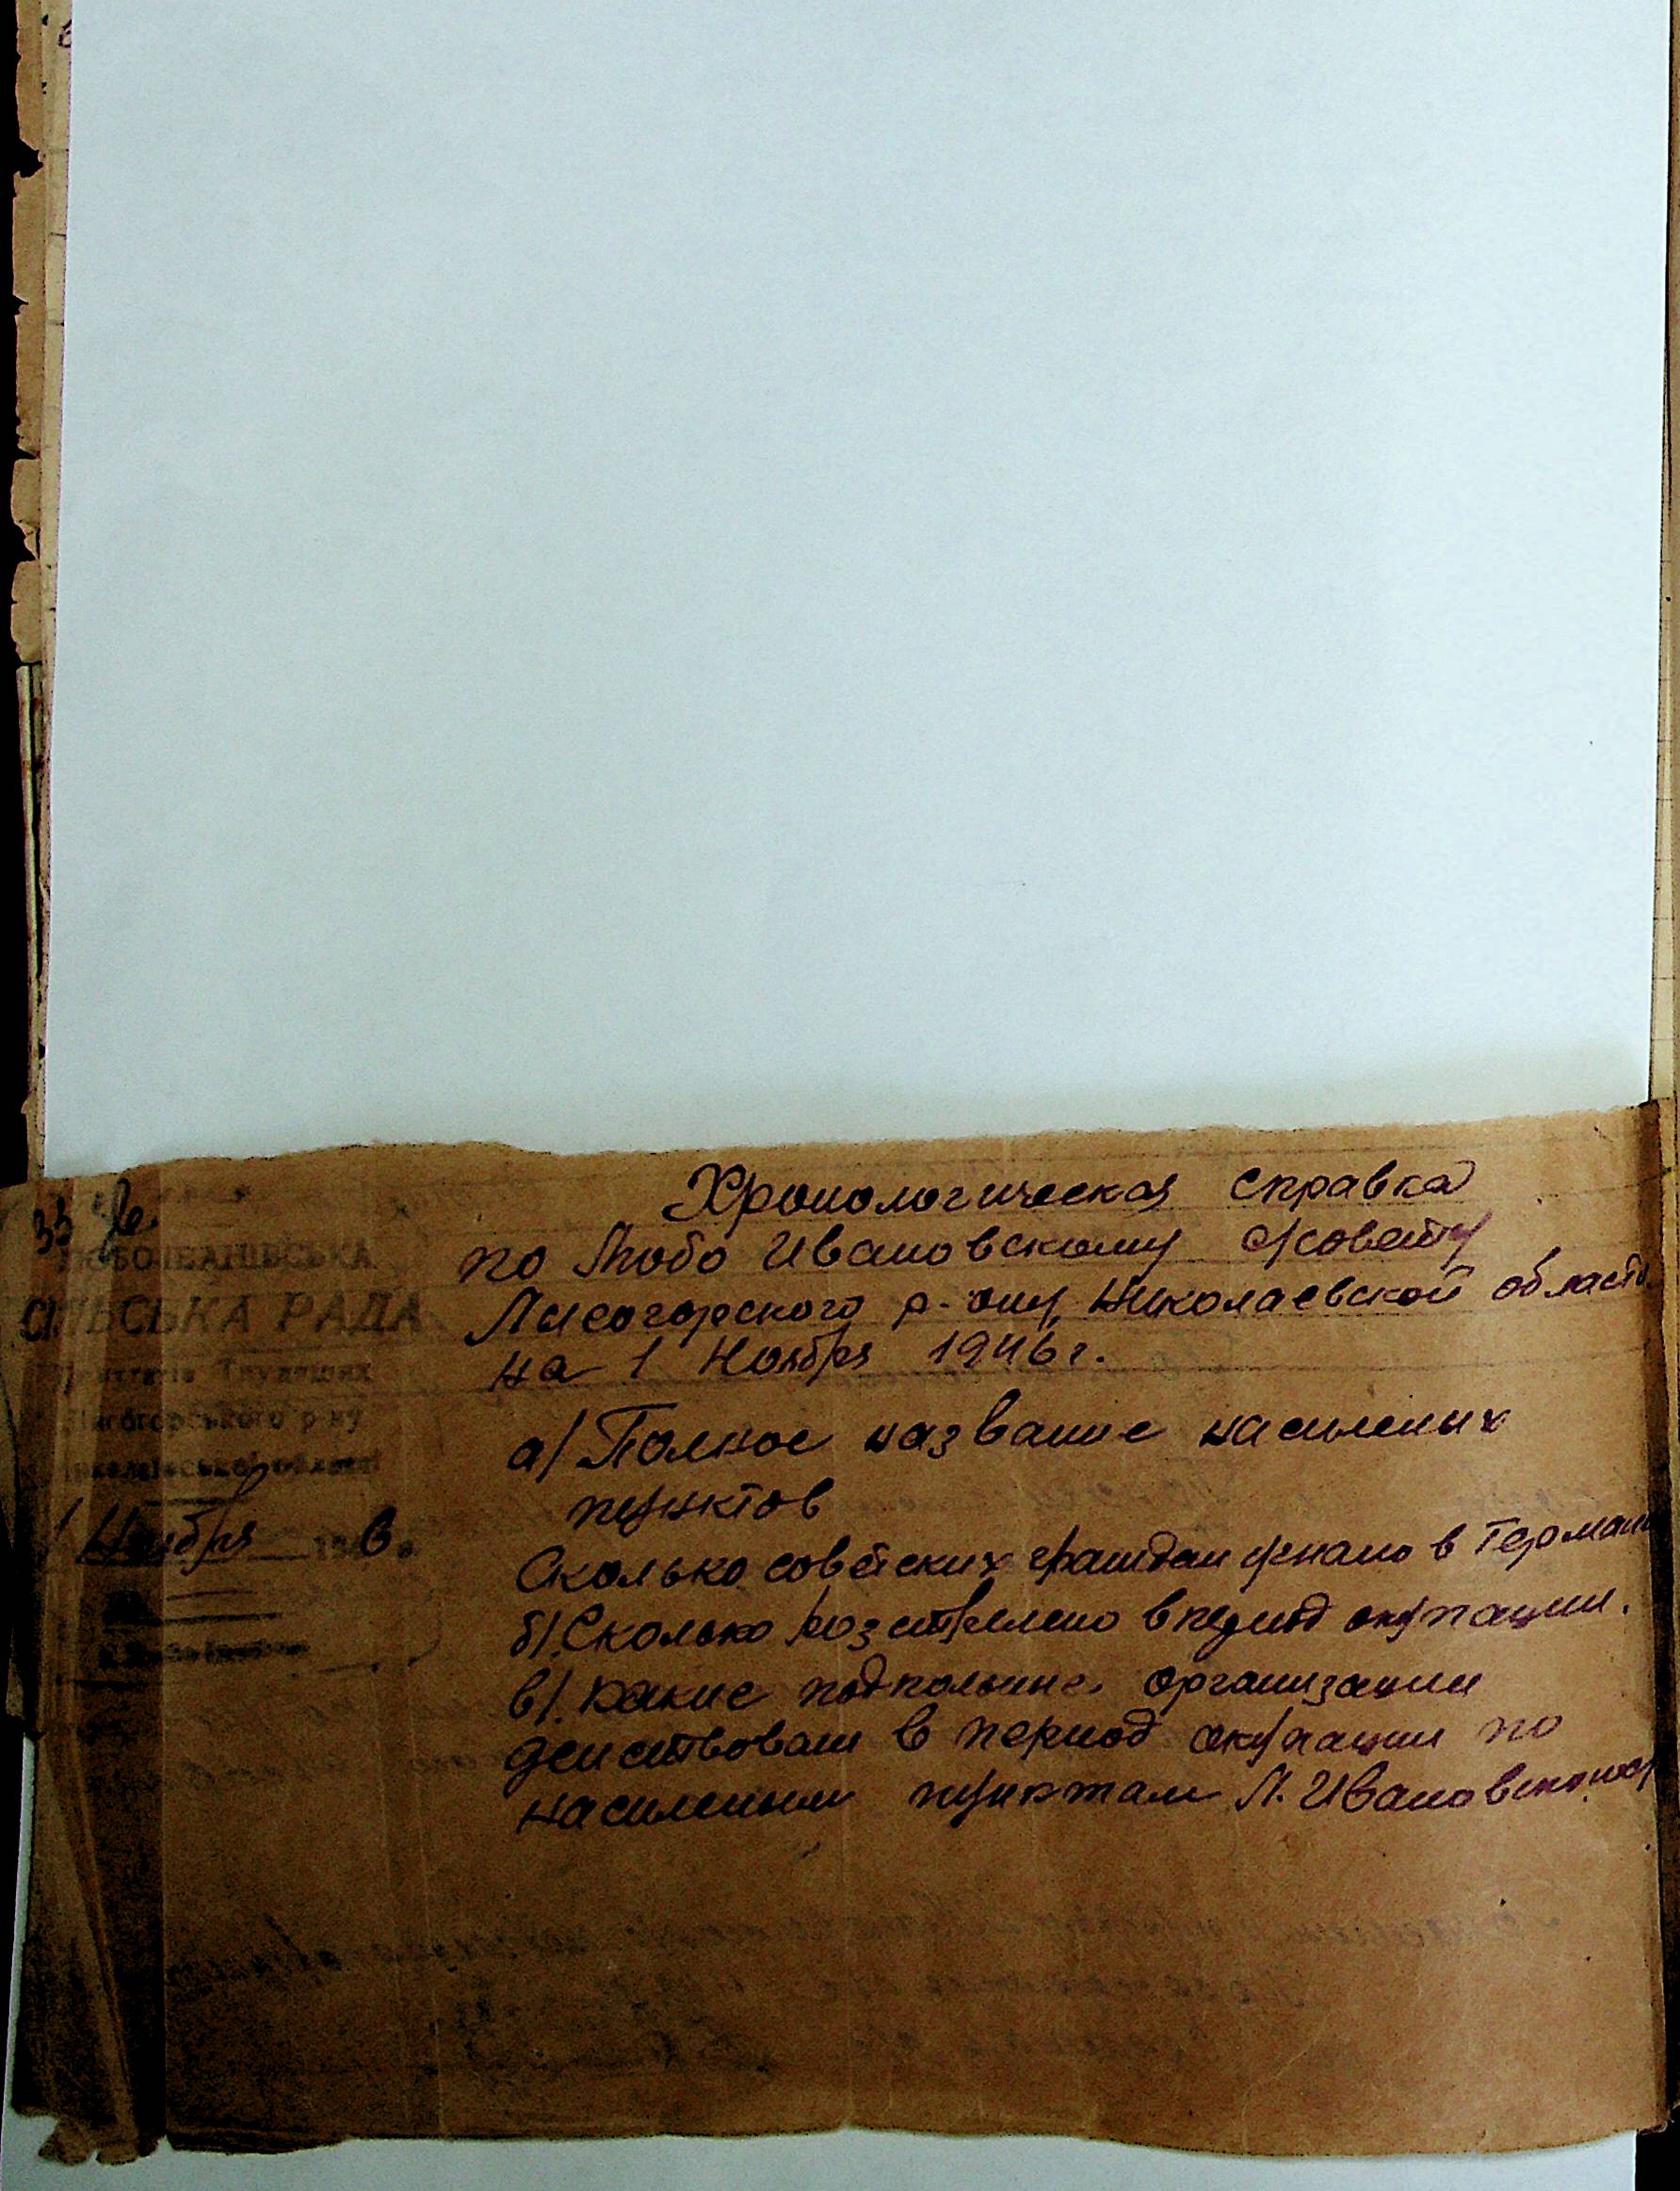 33
ЛЮБОІВАНІВСЬКА
СІЛЬСЬКА РАДА
Лисогорського р-ну
1 Ноября 6
Хронологическая справка
по Любо Ивановскому с/совету
Лисогорского р-ону, Николаевской области
на 1 Ноября 1946 г.
а/ Полное название населеных
пунктов
Сколько советских граждан угнано в
б/. Сколько розстрелено в окупации.
в/. Какие организации
действовали в период окупации по
населеным пунктам Л. Ивановского